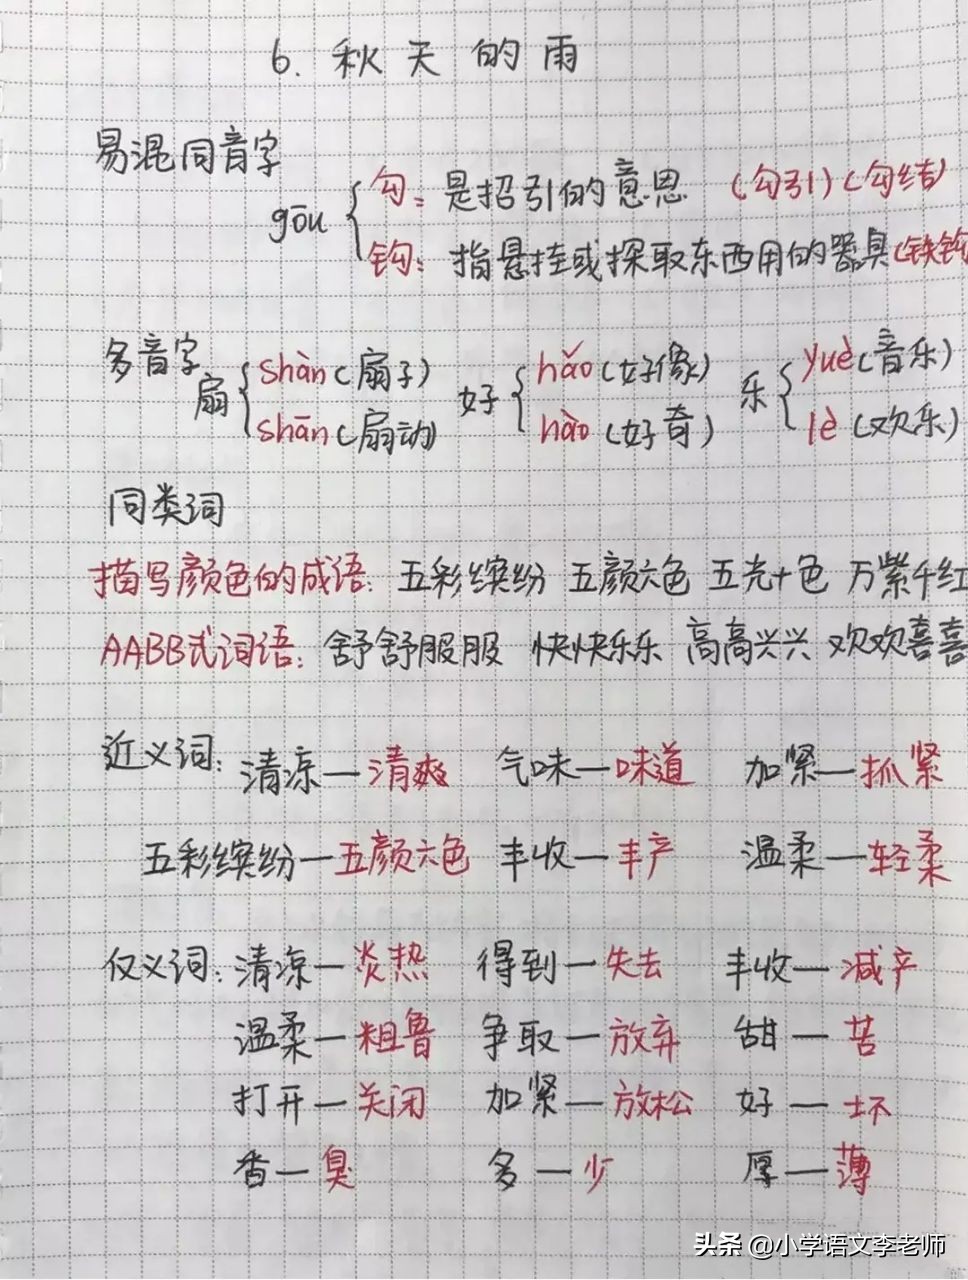 6. 秋天的雨
易混同音字
gōu
勾：是招引的意思 (勾引)(勾结)
钩：指悬挂或探取东西用的器具(铁钩
多音字
扇 shàn(扇子) shān(扇动)
好 hǎo(好像) hào(好奇)
乐 yuè(音乐) lè(欢乐)
同类词
描写颜色的成语：五彩缤纷 五颜六色 五光十色 万紫千红
AABB式词语：舒舒服服 快快乐乐 高高兴兴 欢欢喜喜
近义词：清凉—清爽 气味—味道 加紧—抓紧
五彩缤纷—五颜六色 丰收—丰产 温柔—轻柔
反义词：清凉—炎热 得到—失去 丰收—减产
温柔—粗鲁 争取—放弃 甜—苦
打开—关闭 加紧—放松 好—坏
香—臭 多—少 厚—薄
头条 @小学语文李老师